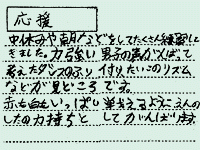 応援
中休みや朝などをしてたくさん練習し
きました。力強い男子の声がんばって
考えたダンスのふり付けたいこのリズム
などが見どころです。
赤も白もいっぱい栄えるようにえんの
したの力持ちとしてがんばります